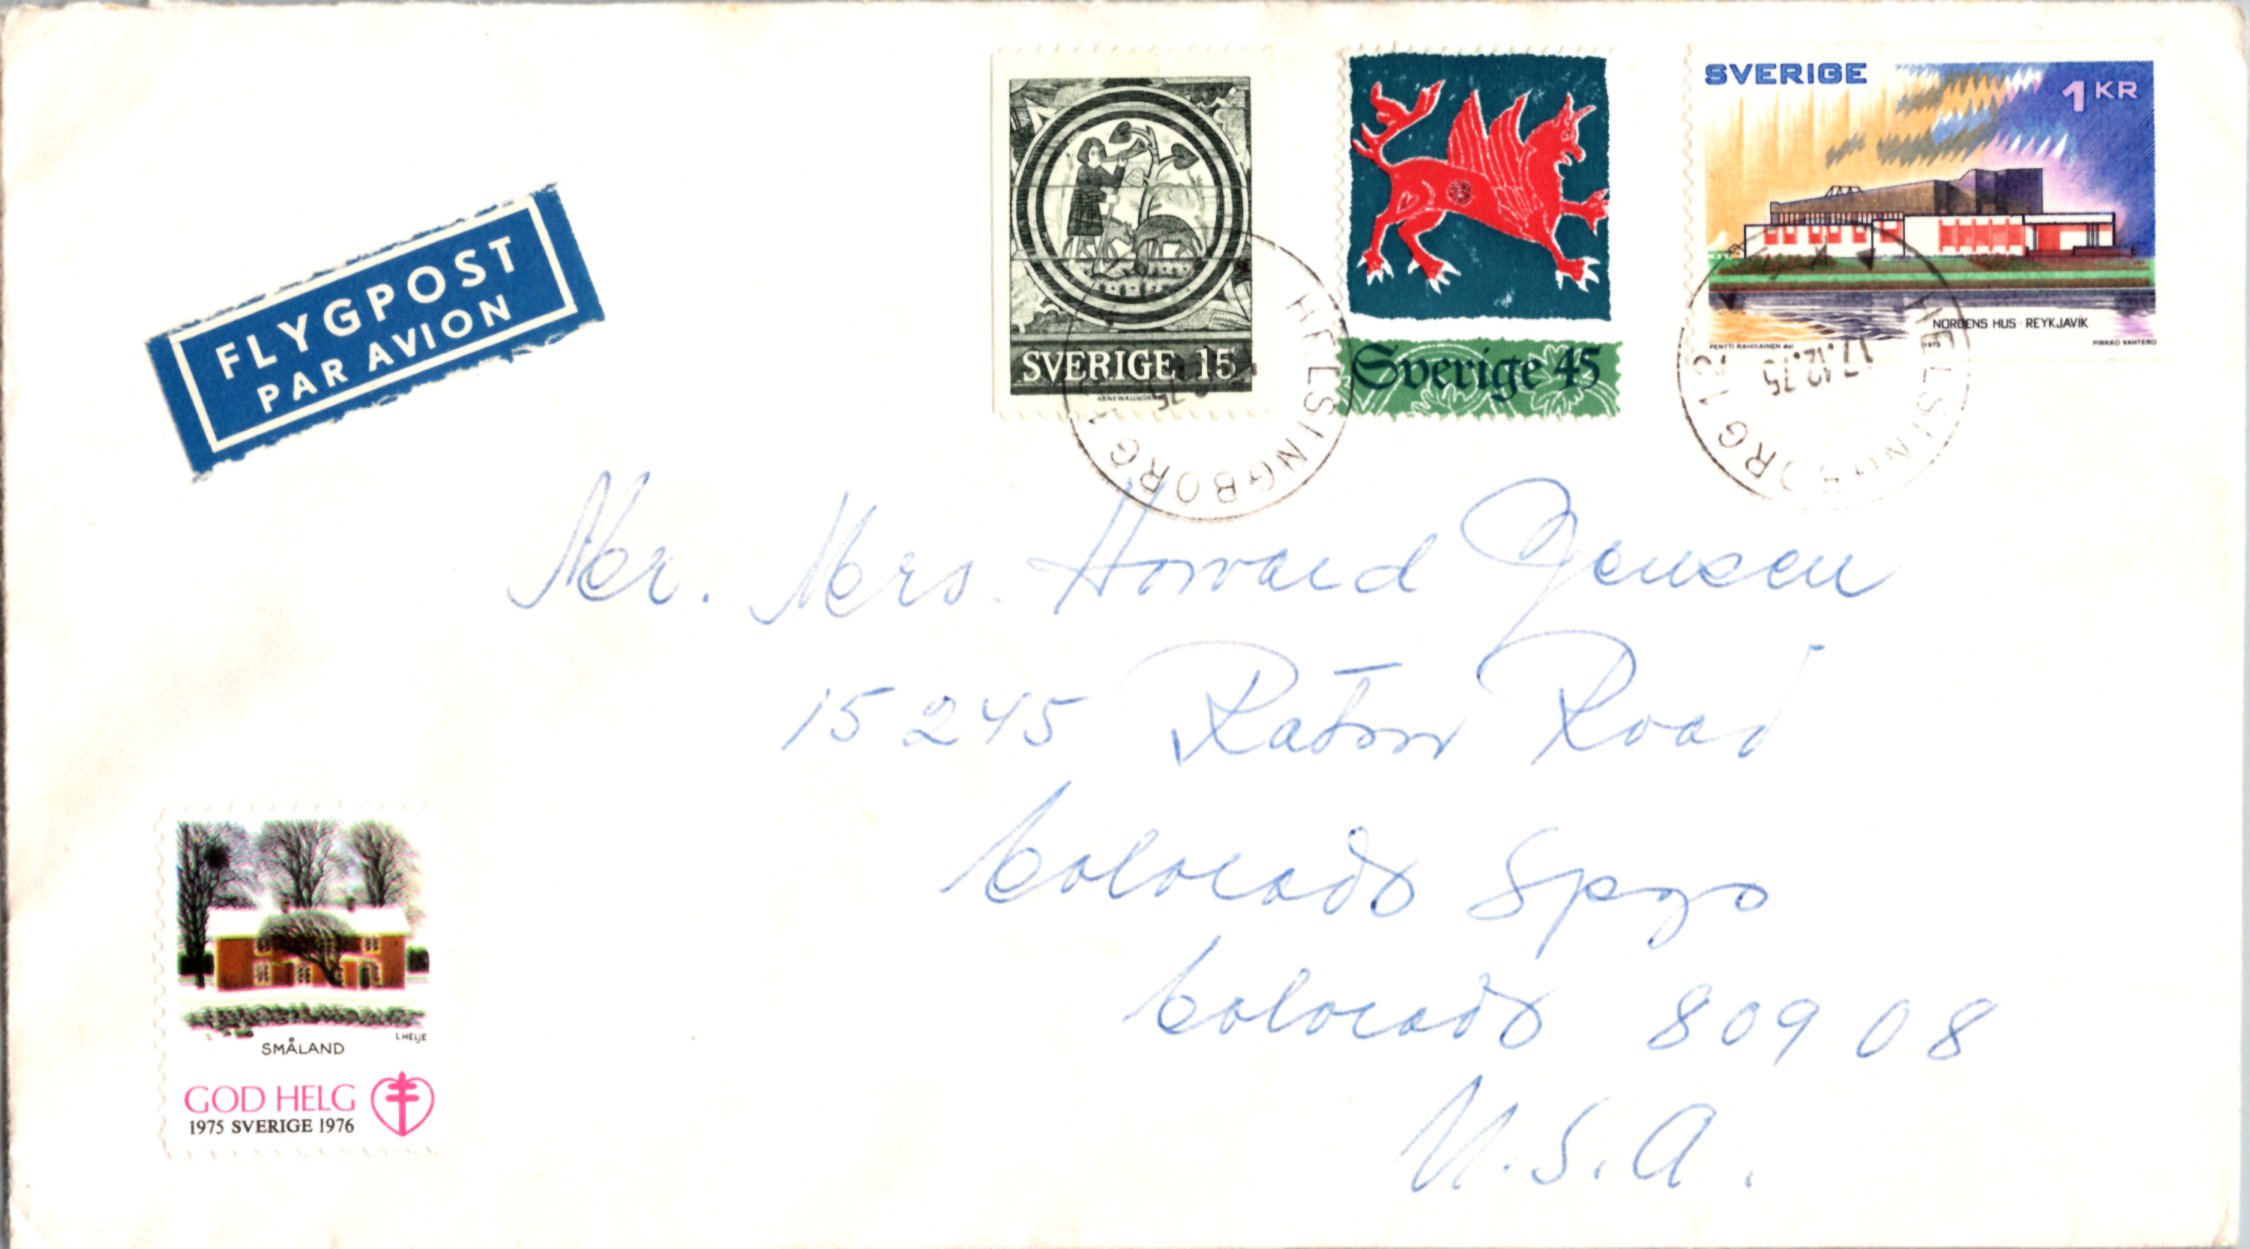 FLYGPOST
PAR AVION
SVERIGE 15
Sverige 45
SVERIGE
1 KR
NORDENS HUS · REYKJAVIK
PENTTI RAHIKAINEN del
1973
PIRKKO VAHTERO
HELSINGBORG 1
HELSINGBORG 1
17.12.75
Mr. Mrs. Howard Jensen
15245 Raton Road
Colorado Spgs
Colorado 80908
U.S.A.
SMÅLAND
L HELJE
GOD HELG
1975 SVERIGE 1976